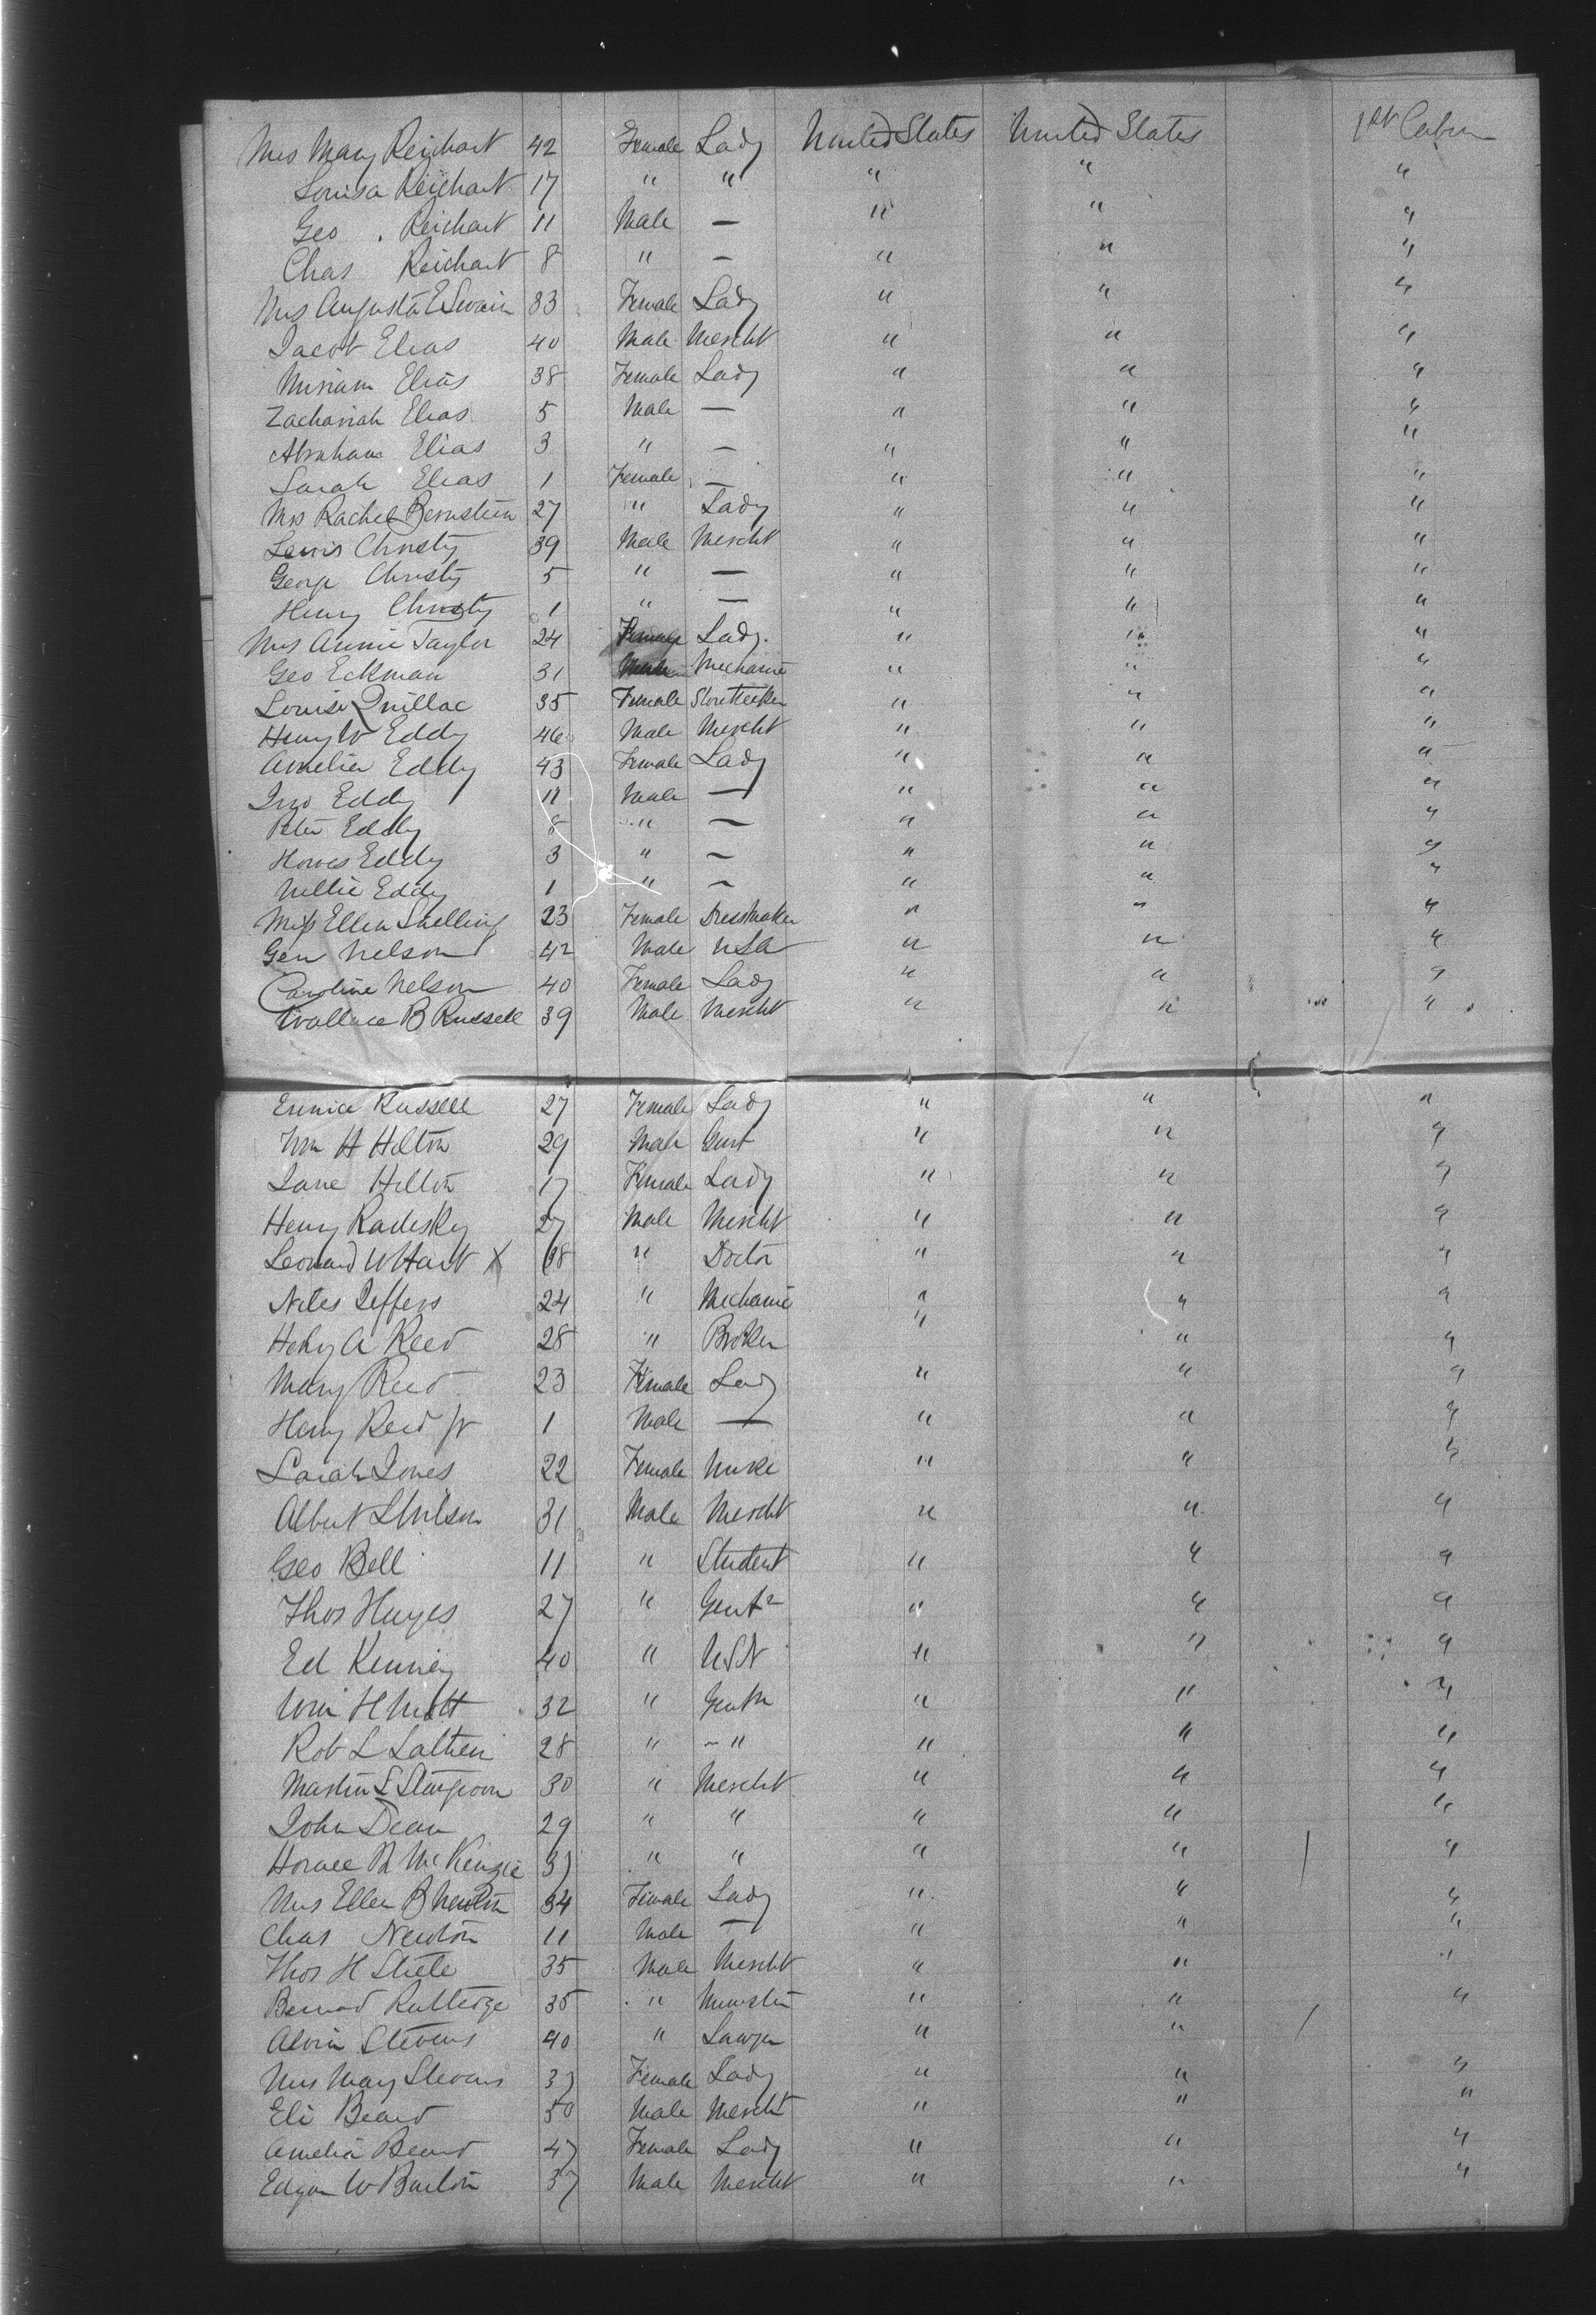 Mrs Mary Reichart 42 Female Lady United States United States 1st Cabin
Louisa Reichart 17 " " " " "
Geo . Reichart 11 Male — " " "
Chas Reichart 8 " — " " "
Mrs Augusta E Swain 33 Female Lady " " "
Jacob Elias 40 Male Mercht " " "
Miriam Elias 38 Female Lady " " "
Zachariah Elias 5 Male — " " "
Abraham Elias 3 " — " " "
Sarah Elias 1 Female — " " "
Mrs Rachel Bernstein 27 " Lady " " "
Lewis Christy 39 Male Mercht " " "
George Christy 5 " — " " "
Henry Christy 1 " — " " "
Mrs Annie Taylor 24 Female Lady. " " "
Geo Eckman 31 Male Mechanic " " "
Louise Quillac 35 Female Storekeeper " " "
Henry W Eddy 46 Male Mercht " " "
Amelia Eddy 43 Female Lady " " "
Jno Eddy 11 Male — " " "
Peter Eddy 8 " — " " "
Howes Eddy 3 " — " " "
Nellie Eddy 1 " — " " "
Miss Ellen Snelling 23 Female Dressmaker " " "
Gen Nelson 42 Male USA " " "
Caroline Nelson 40 Female Lady " " "
Wallace B Russell 39 Male Mercht " " "
Eunice Russell 27 Female Lady " " "
Wm H Hilton 29 Male Gent " " "
Jane Hilton 17 Female Lady " " "
Henry Radesky 27 Male Mercht " " "
Leonard W Hart X 68 " Doctor " " "
Niles Jeffers 24 " Mechanic " " "
Henry A Reed 28 " Broker " " "
Mary Reed 23 Female Lady " " "
Henry Reed Jr 1 Male — " " "
Sarah Jones 22 Female Nurse " " "
Albert S Wilson 31 Male Mercht " " "
Geo Bell 11 " Student " " "
Thos Hayes 27 " Gentn " " "
Ed Kenney 40 " USN " " "
Wm H Mott 32 " Gentn " " "
Rob L 28 " " " " "
Martin S Sturgeon 30 " Mercht " " "
John Dean 29 " " " " "
Horace R McKenzie 37 " " " " "
Mrs Ellen B Newton 34 Female Lady " " "
Chas Newton 11 Male — " " "
Thos H Steele 35 Male Mercht " " "
Bernard Rutledge 35 " Minister " " "
Alvin Stevens 40 " Lawyer " "
Mrs Mary Stevens 37 Female Lady " " "
Eli Beard 50 Male Mercht " " "
Amelia Beard 47 Female Lady " " "
Edgar W Barton 37 Male Mercht " " "